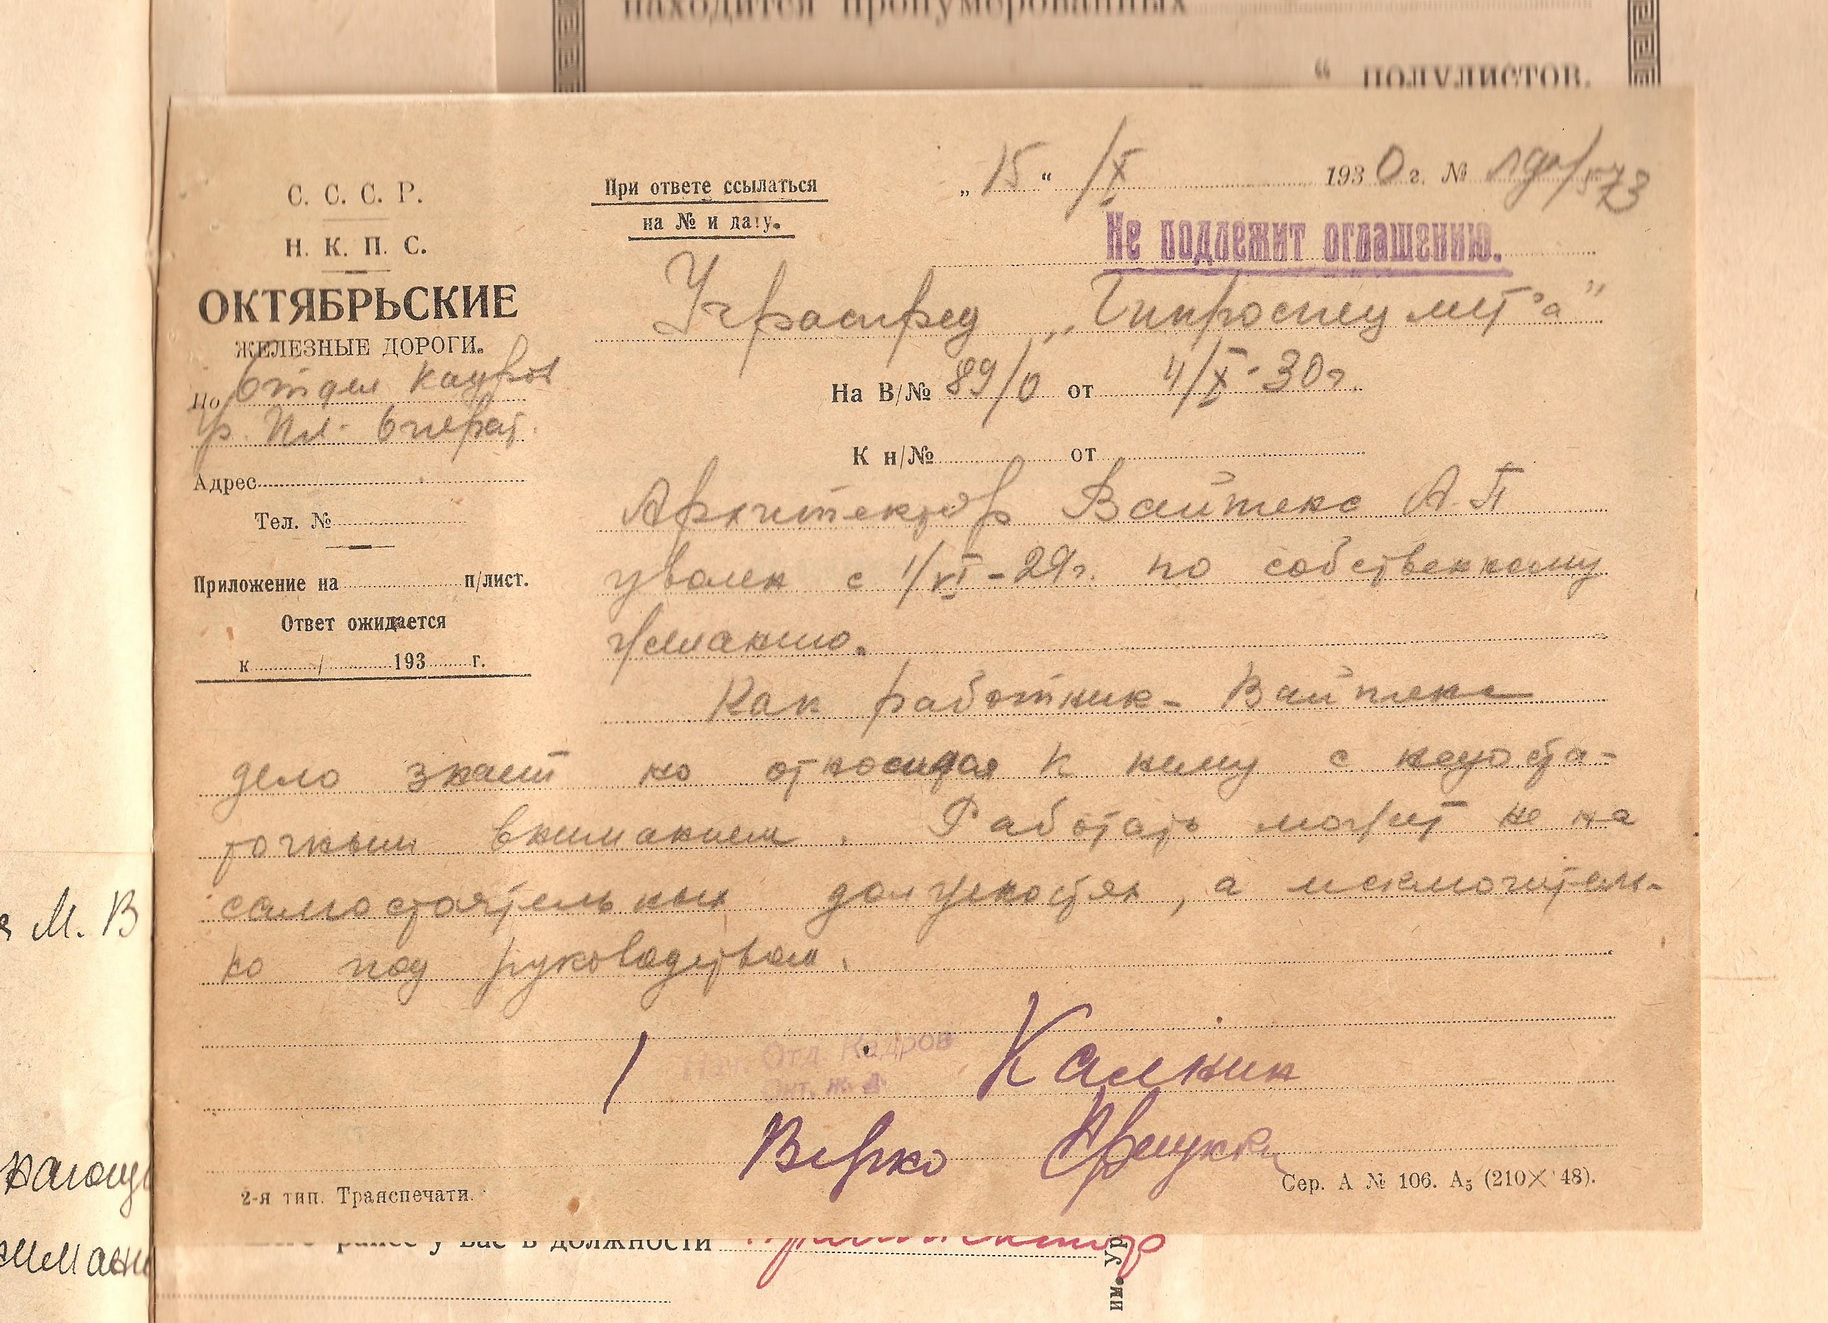 находится пронумерованных
“ полулистов.
С. С. С. Р.
Н. К. П. С.
ОКТЯБРЬСКИЕ
ЖЕЛЕЗНЫЕ ДОРОГИ.
По Отдел кадров
Адрес
Тел. №
Приложение на п/лист.
Ответ ожидается
к / 193 г.
При ответе ссылаться
на № и дату.
„ 15 “ /X 1930 г. №
Не подлежит оглашению.
Учраспред „Гипроспецмет'а“
На В/№ 89/0 от 4/X-30г.
К н/№ от
Архитектор Вайтенс А.П
уволен с 1/VI-29г. по собственному
желанию.
Как работник- Вайтенс
дело знает но относился к нему с недоста-
точным вниманием. Работать может не на
самостоятельных должностях, а исключитель-
но под руководством.
Нач. Отд. Кадров
Окт. ж. д.
Калнин
Верно
2-я тип. Транспечати.
Сер. А № 106. А₅ (210×148).
М. В
ранее у вас в должности